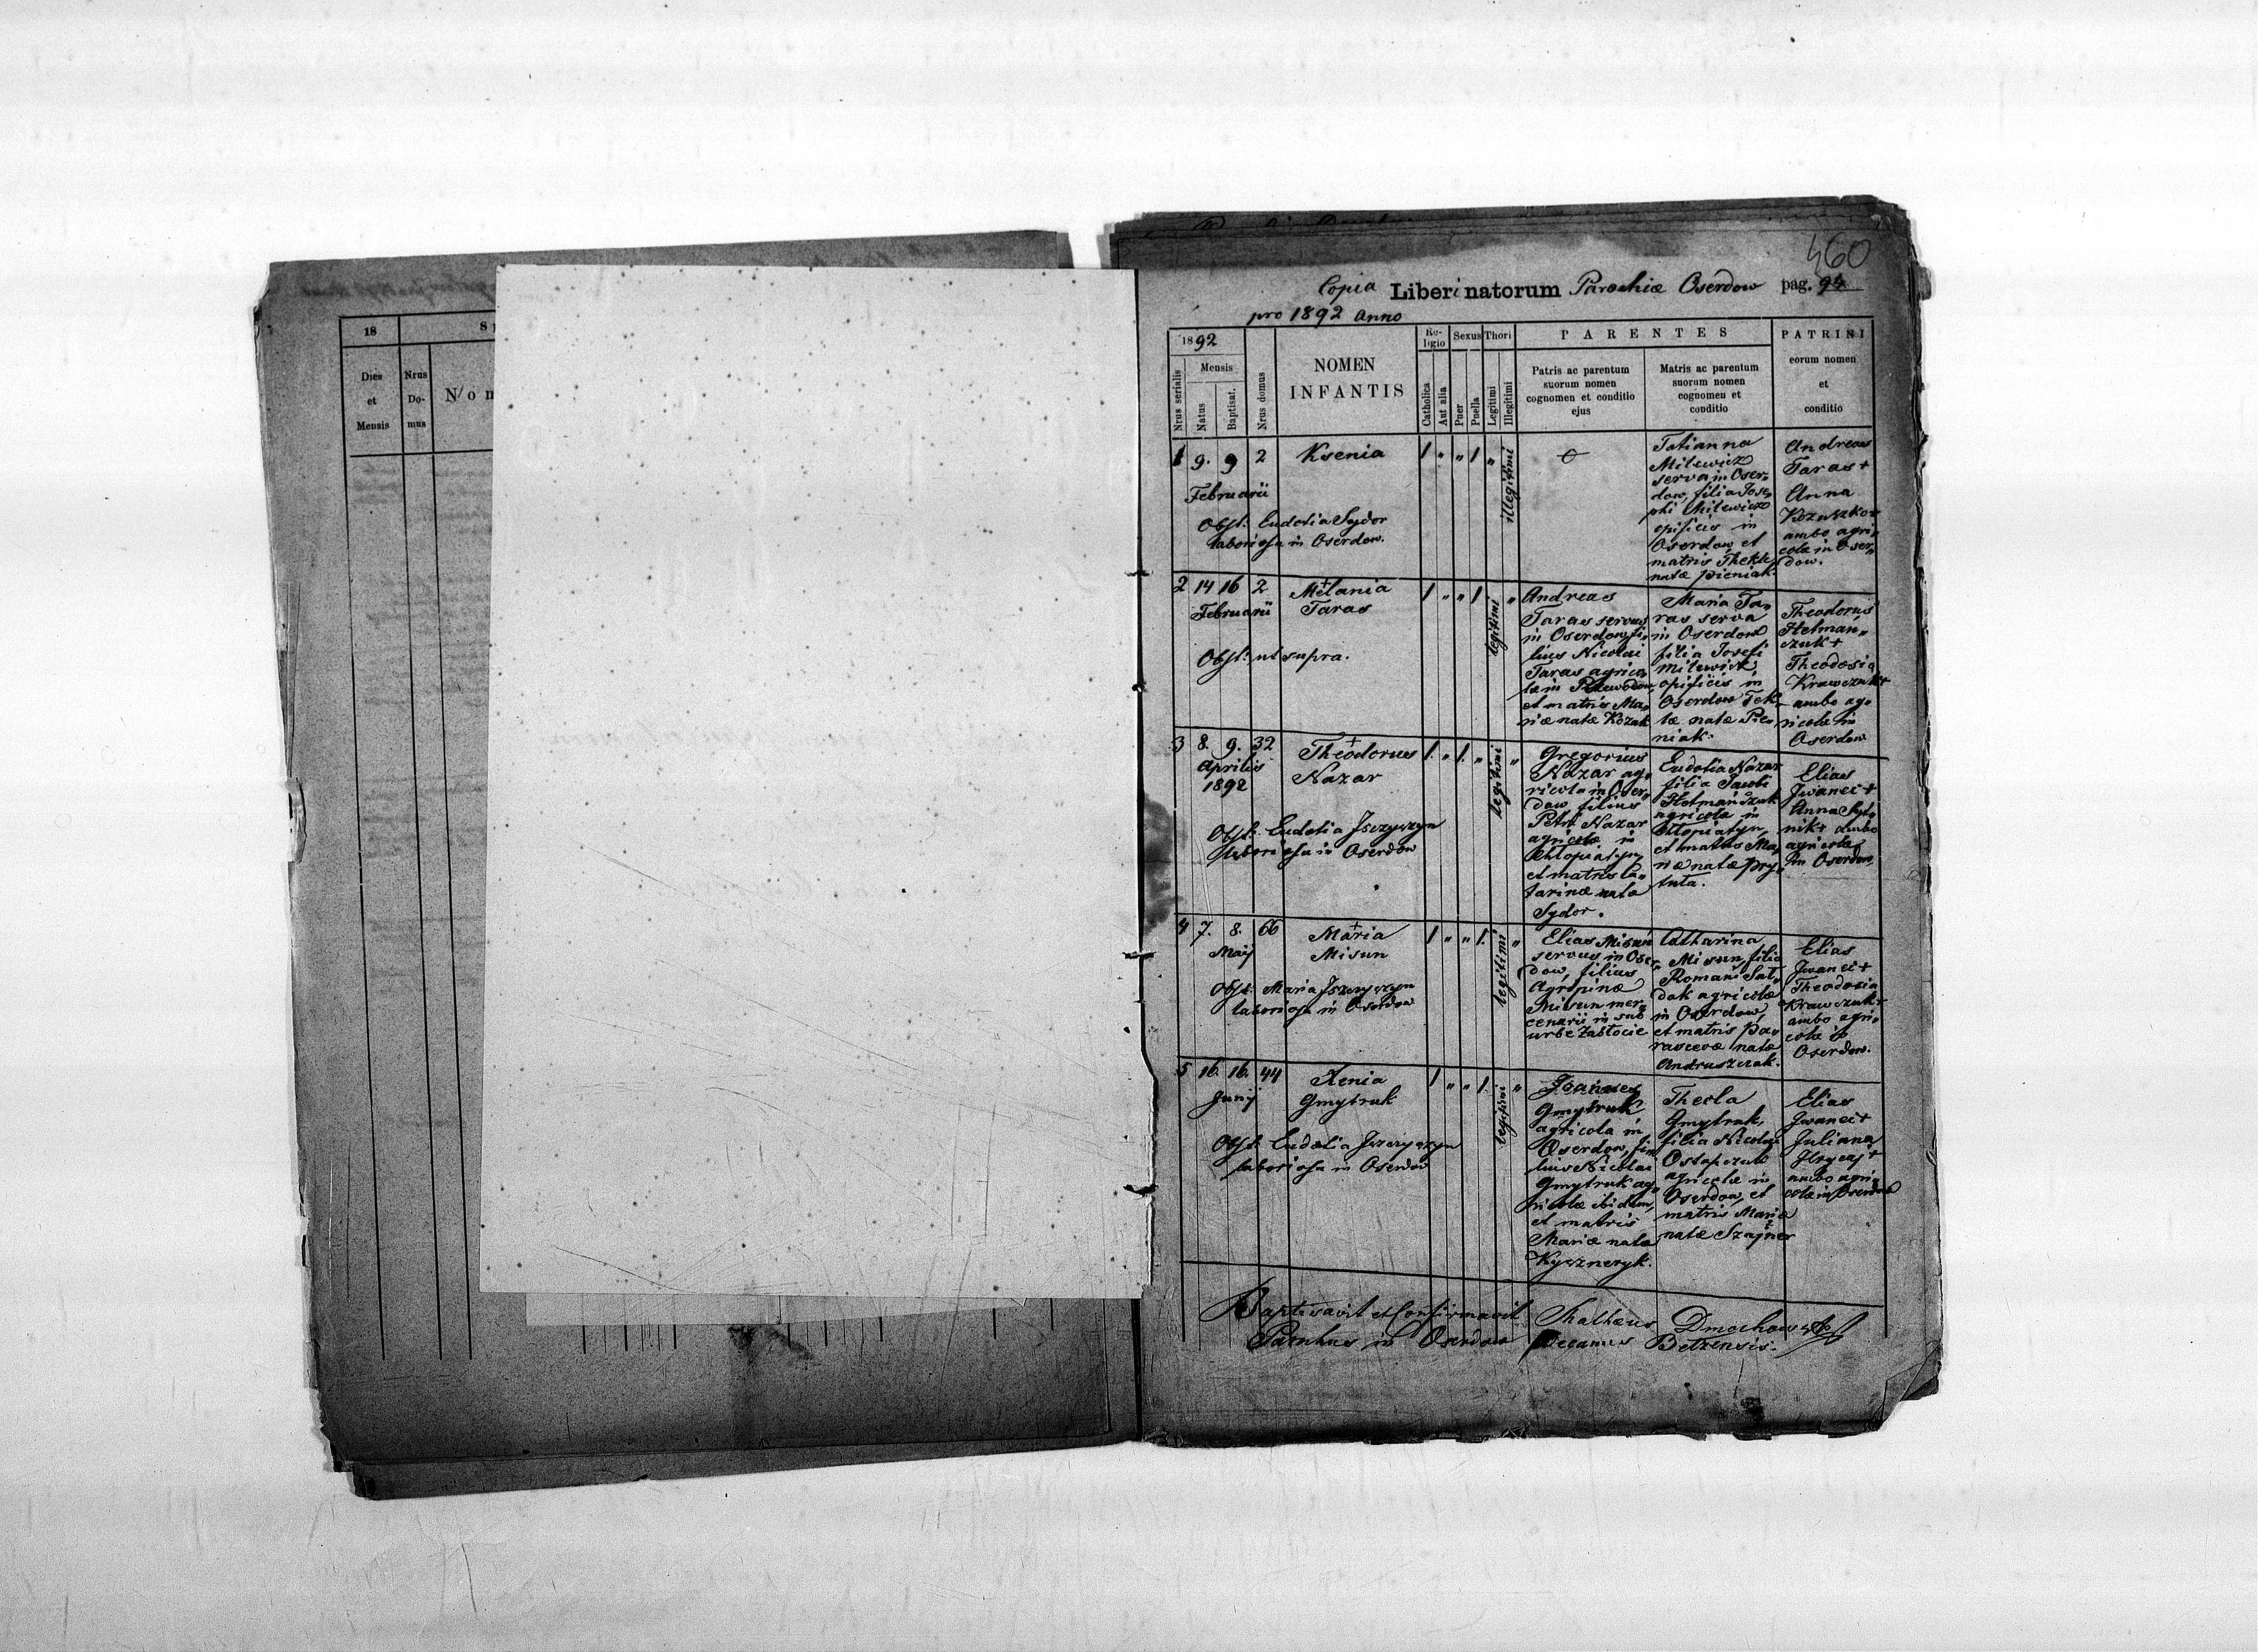 18
Dies
et
Mensis
Nrus
Do-
mus
460
Copia Liberi natorum Parochiæ Oserdow pag. 94
pro 1892 Anno
1892
Nrus serialis
Mensis
Natus
Baptisat.
Nrus domus
NOMEN
INFANTIS
Re-
ligio
Catholica
Aut alia
Sexus
Puer
Puella
Thori
Legitimi
Illegitimi
PARENTES
Patris ac parentum
suorum nomen
cognomen et conditio
ejus
Matris ac parentum
suorum nomen
cognomen et
conditio
PATRINI
eorum nomen
et
conditio
1 9. 9 2 Ksenia 1 " " 1 " illegitimi
Februarii
Obst: Eudotia Sydor
laboriosa in Oserdow.
Tatianna
Milewicz
serva in Oser-
dow, filia Jose-
phi Milewicz
opificis in
Oserdow et
matris Thekla
natæ Pieniak.
Andreas
Taras +
Anna
Kozuszko +
ambo agri-
colæ in Oser-
dow.
2 14 16 2 Melania 1 " " 1 legitimi "
Februarii Taras
Obst: ut supra.
Andreas
Taras servus
in Oserdow, fi-
lius Nicolai
Taras agrico-
læ in
et matris Ma-
riæ natæ Kozak
Maria Ta-
ras serva
in Oserdow
filia Josefi
Milewicz
opificis in
Oserdow Tek-
læ natæ Pie-
niak.
Theodorus
Hetman-
czuk +
Theodosia
Krawczuk +
ambo ag-
ricolæ in
Oserdow
3 8. 9. 32 Theodorus 1. " 1. " legitimi "
Aprilis Nazar
1892
Obst: Eudotia Jszczyszyn
laboriosa in Oserdow
Gregorius
Nazar ag-
ricola in Oser-
dow, filius
Petri Nazar
agricolæ in
Chłopiatyn
et matris Ca-
tarinæ natæ
Sydor.
Eudotia Nazar
filia Jacobi
Hetmańczuk
agricolæ in
Chłopiatyn,
et matris Ma-
riæ natæ Pry-
tuła.
Elias
Jwanei +
Anna
nik + ambo
agricolæ
in Oserdow.
4 7. 8. 66 Maria 1 " " 1. legitimi "
Maij Misun
Obst: Maria Jszczyszyn
laboriosa in Oserdow
Elias Misun
servus in Oser-
dow, filius
Agripinæ
Misun mer-
cenarii in sub
urbe Zabłocie
Catharina
Misun, filia
Romani Sał-
dak agricolæ
in Oserdow,
et matris Pa-
rascevæ natæ
Andruszczak.
Elias
Jwanei +
Theodosia
Krawczuk +
ambo agri-
colæ in
Oserdow.
5 16. 16. 44 Xenia 1 " " 1. legitimi "
Junij Gmytruk
Obst: Eudotia Jszczyszyn
laboriosa in Oserdow
Joannes
Gmytruk
agricola in
Oserdow, fi-
lius Nicolai
Gmytruk ag-
ricolæ ibidem,
et matris
Mariæ natæ
Kyszneryk.
Thecla
Gmytruk,
filia Nicolai
Ostapczuk
agricolæ in
Oserdow, et
matris Mariæ
natæ Szajner
Elias
Jwanei +
Juliana
Hrycaj +
ambo agri-
colæ in Oserdow
Baptisavit et Confirmavit Mathæus Dmochowski
Parochus in Oserdow Decanus Bełzensis.